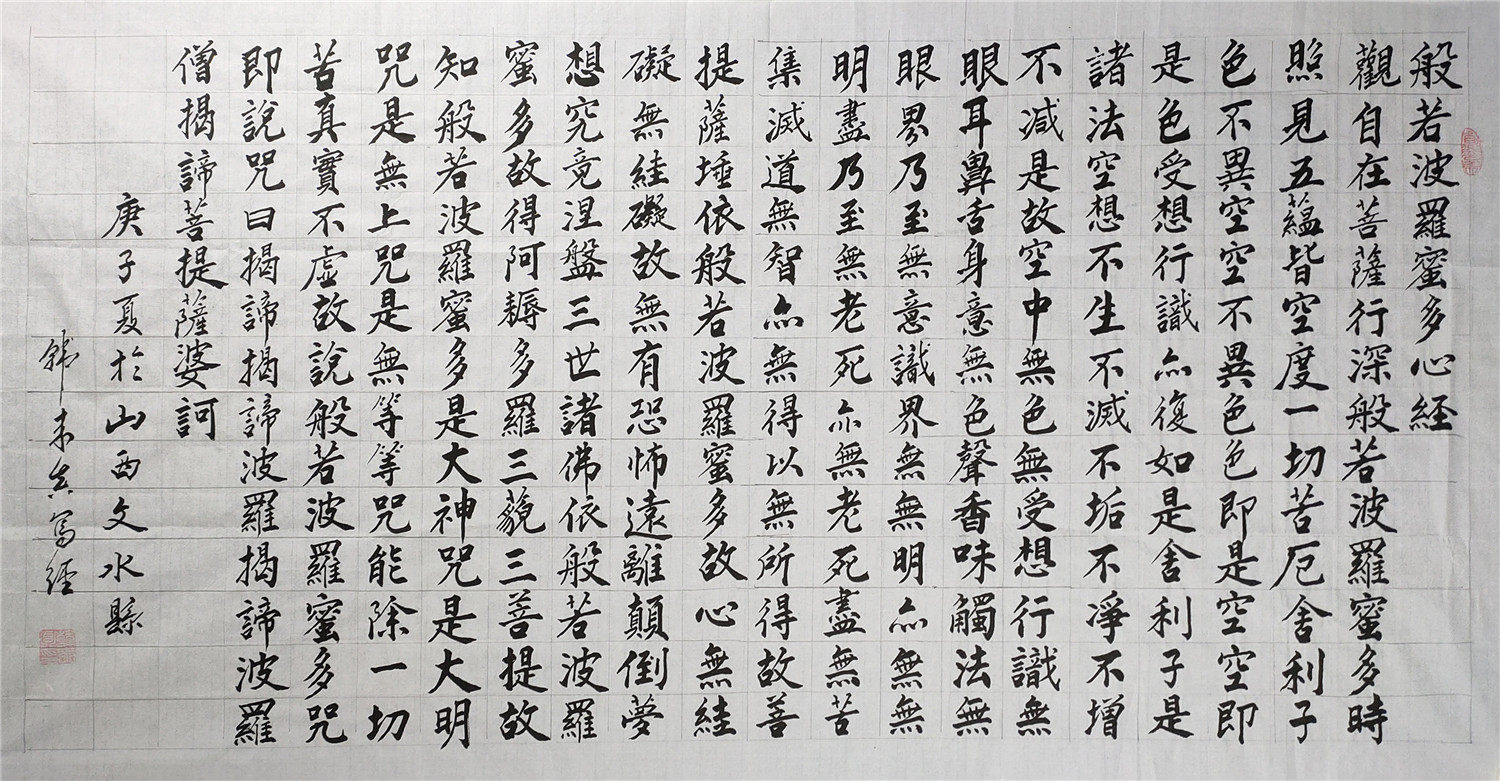 般若波羅蜜多心経
觀自在菩薩行深般若波羅蜜多時
照見五蘊皆空度一切苦厄舍利子
色不異空空不異色色即是空空即
是色受想行識亦復如是舍利子是
諸法空想不生不滅不垢不淨不增
不減是故空中無色無受想行識無
眼耳鼻舌身意無色聲香味觸法無
眼界乃至無意識界無無明亦無無
明盡乃至無老死亦無老死盡無苦
集滅道無智亦無得以無所得故菩
提薩埵依般若波羅蜜多故心無絓
礙無絓礙故無有恐怖遠離顛倒夢
想究竟涅盤三世諸佛依般若波羅
蜜多故得阿耨多羅三藐三菩提故
知般若波羅蜜多是大神咒是大明
咒是無上咒是無等等咒能除一切
苦真實不虛故說般若波羅蜜多咒
即說咒曰揭諦揭諦波羅揭諦波羅
僧揭諦菩提薩婆訶
庚子夏於山西文水縣
寫經